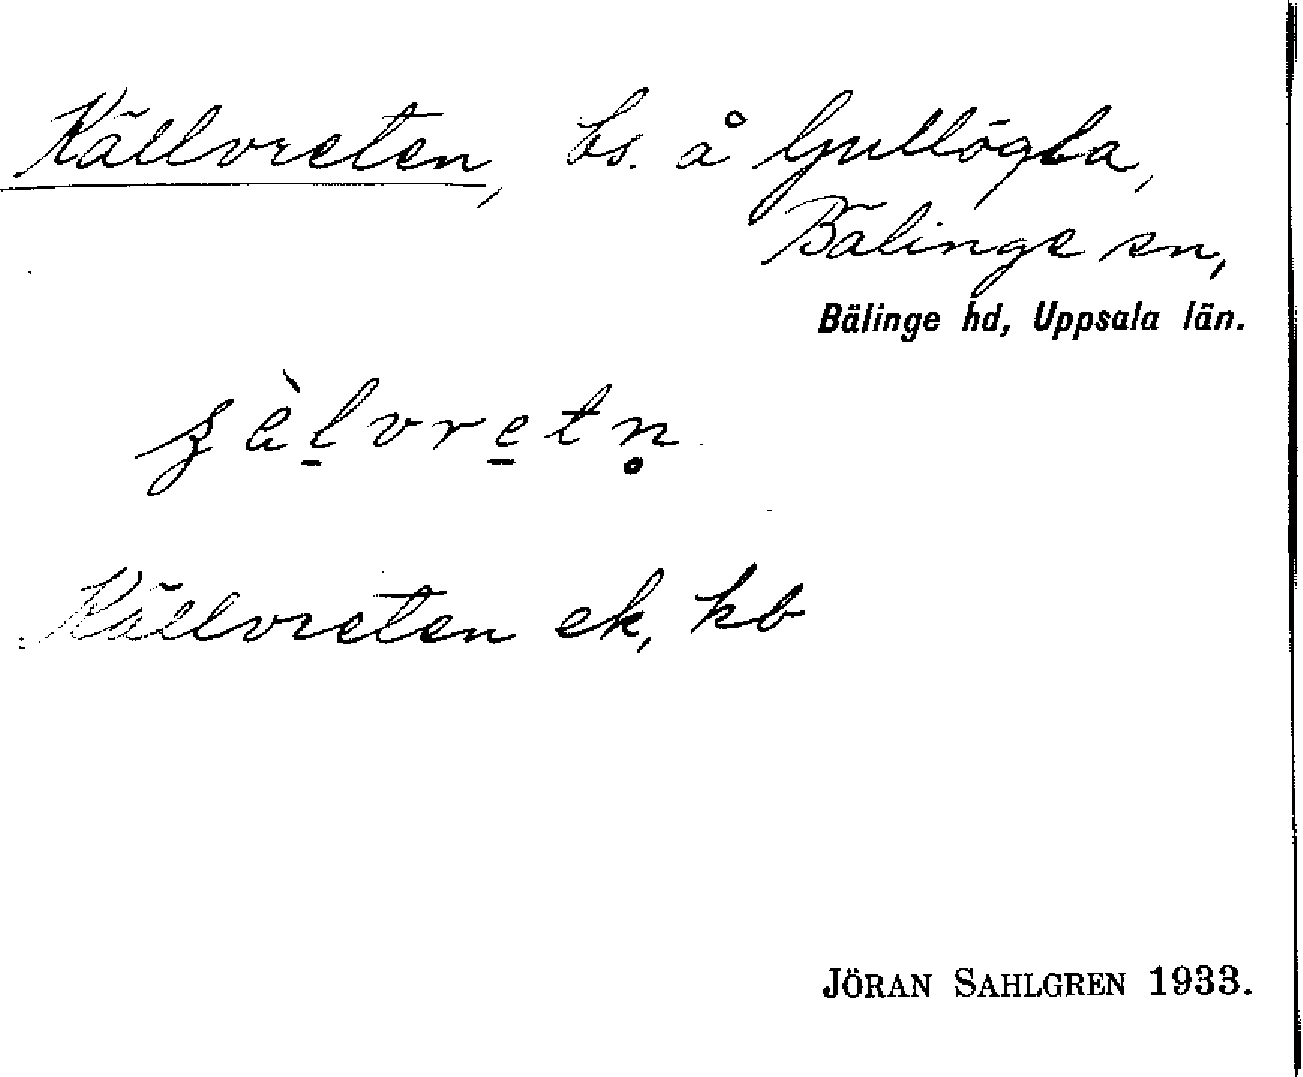 Källvreten, ls. å Ljullögla,
Bälinge sn,
Bälinge hd, Uppsala län.
Källvreten ek, hb
JÖRAN SAHLGREN 1933.